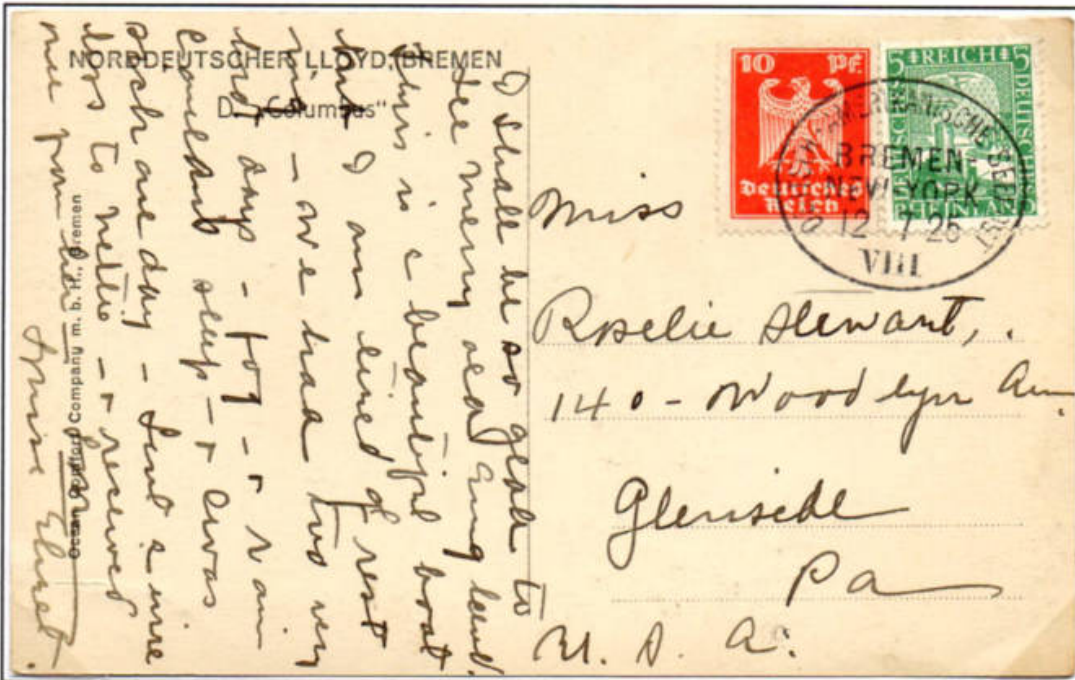 NORDDEUTSCHER LLOYD, BREMEN
D. „Columbus"
Ocean Comfort Company m. b. H., Bremen
I shall be so glad to
see merry old England.
This is a beautiful boat
but I am tired of rest
- we had two very
hot days - fog - + rain
Couldnt sleep - + I was
sick one day - Sent a wire
to Nellie - + received
one from her
Louise Ehret.
10 Pf.
Deutsches
Reich
5 REICH 5
DEUTSCHES
DEUTSCH-AMERIKANISCHE SEEPOST
BREMEN-
NEW-YORK
12 7 26
VIII
Miss
Roselie Stewart,
140 - Woodlyn Av.
Glenside
Pa
U. S. A.